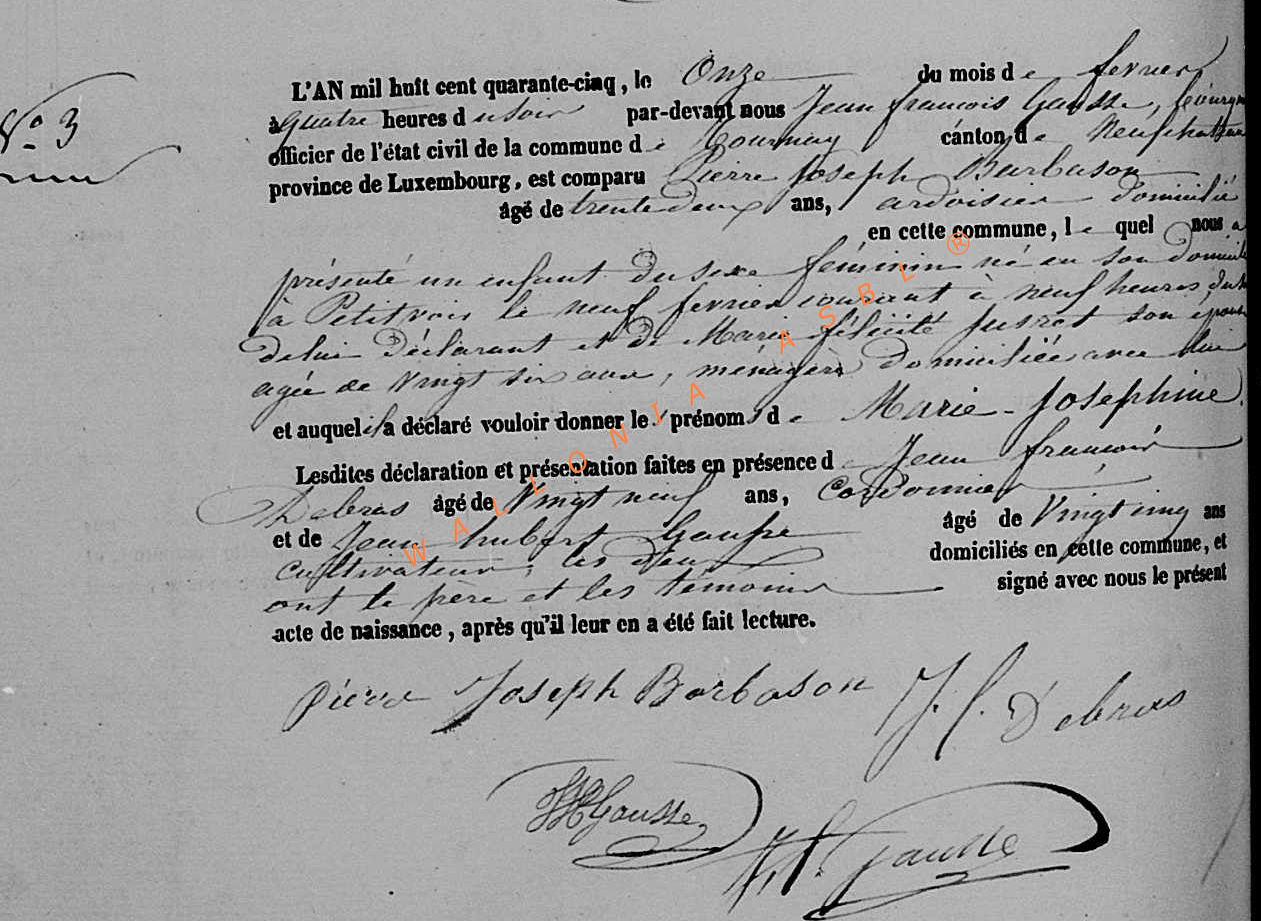 N° 3
L'AN mil huit cent quarante-cinq, le Onze du mois de fevrier
à quatre heures du soir par-devant nous Jean françois Gausse, Bourgm
officier de l'état civil de la commune de Tournay canton de Neufchateau
province de Luxembourg, est comparu Pierre Joseph Barbason
âgé de trente deux ans, ardoisier domicilié
en cette commune, le quel nous a
présenté un enfant du sexe féminin né en son domicile
à Petitvoir le neuf fevrier courant à neuf heures du
de lui déclarant et de Marie félicité Jusret son epouse
agée de vingt six ans, ménagère domiciliée avec lui
et auquel il a déclaré vouloir donner les prénoms de Marie-Josephine.
Lesdites déclaration et présentation faites en présence de Jean françois
Debras âgé de vingt neuf ans, Cordonnier
et de Jean hubert Gausse âgé de vingt cinq ans
cultivateur, les deux domiciliés en cette commune, et
ont le père et les témoins signé avec nous le présent
acte de naissance, après qu'il leur en a été fait lecture.
Pierre Joseph Barbason J. f. Debras
JH Gausse
J. f. Gausse
WALLONIA ASBL ®